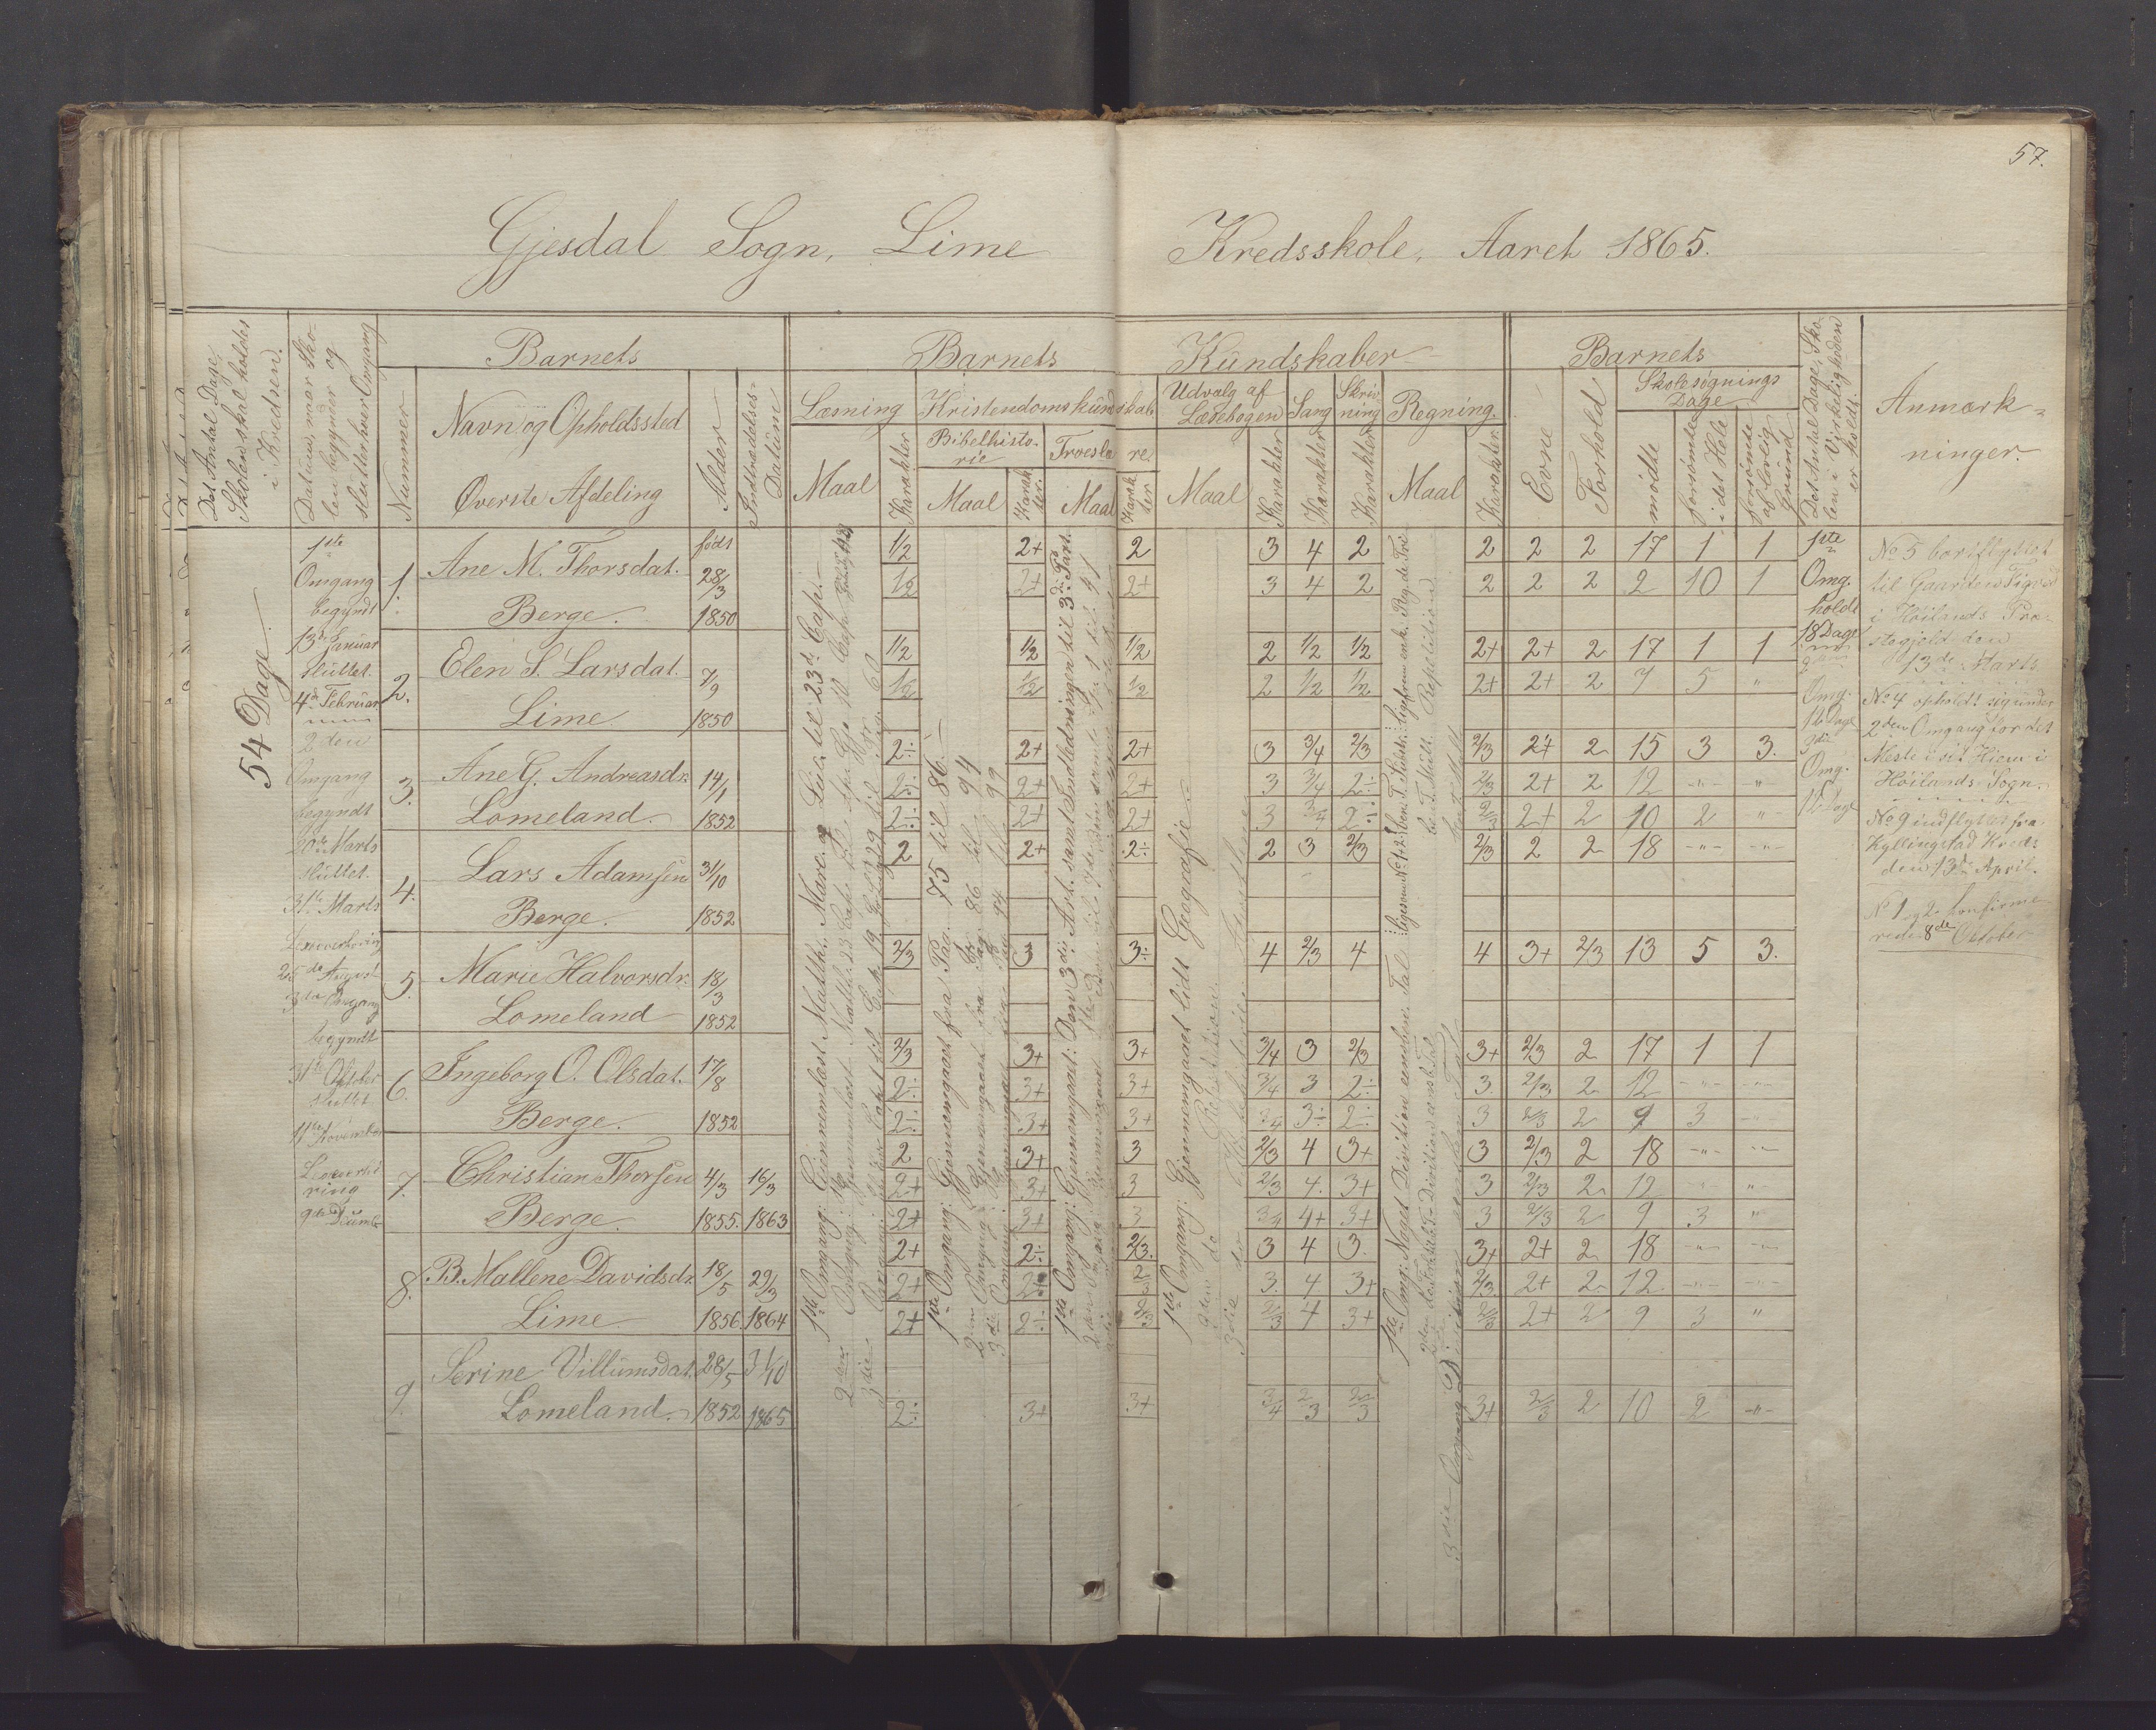 57.
Gjesdal Sogn, Lime Kredsskole, Aaret 1865.
Det Antal Dage, Skolen skal holdes i Kredsen.
Datum, naar Skolen begynder og slutter hver Omgang
Barnets
Nummer
Navn og Opholdssted
Øverste Afdeling
Alder
Indtrædelses-Datum
Barnets Kundskaber
Læsning
Maal
Karakter
Kristendomskundskab
Bibelhistorie
Maal
Karakter.
Troeslære.
Maal
Karakter
Udvalg af Læsebogen
Maal
Karakter
Sang
Karakter
Skrivning
Karakter
Regning.
Maal
Karakter.
Barnets
Evne
Forhold
Skolesøgnings Dage
mødte
forsømte i det Hele
forsømte af lovlig Grund
Det Antal Dage, Skolen i Virkeligheden er holdt.
Anmærkninger.
54 Dage.
1ste
Omgang
begyndt
13de Januar
sluttet
4de Februar
2den
Omgang
begyndt
20de Marts
sluttet
31te Marts
25de August
3die Omgang
begyndt
31te Oktober
sluttet
11te November
1. Ane M. Thorsdat. Berge. født 28/3 1850
1/2 2+ 2 3 4 2 2 2 2 17 1 1
1/2 2+ 2+ 3 4 2 2 2 2 2 10 1
2. Elen S. Larsdat. Lime 7/9 1850
1/2 1/2 1/2 2 1/2 1/2 2+ 2+ 2 17 1 1
1/2 1/2 1/2 2 1/2 1/2 2+ 2+ 2 7 5 "
3. Ane G. Andreasdr. Lomeland. 14/1 1852
2÷ 2+ 2+ 3 3/4 2/3 2/3 2+ 2 15 3 3.
2÷ 2+ 2+ 3 3/4 2÷ 2/3 2+ 2 12 -"- "
2÷ 2+ 2+ 3 3/4 2÷ 2/3 2+ 2 10 2 "
4. Lars Adamsen Berge. 31/10 1852
2 2+ 2÷ 2 3 2/3 2/3 2 2 18 -"- -"-
5. Marie Halvorsdr. Lomeland 18/3 1852
2/3 3 3÷ 4 2/3 4 4 3+ 2/3 13 5 3.
6. Ingeborg O. Olsdat. Berge. 17/8 1852
2/3 3+ 3+ 3/4 3 2/3 3+ 2/3 2 17 1 1
2÷ 3+ 3+ 3/4 3 2÷ 3 2/3 2 12 -"- "
2÷ 3+ 3+ 3/4 3÷ 2÷ 3 2/3 2 9 3 "
7. Christian Thorsen Berge. 4/3 1855. 16/3 1863
2 3+ 3 2/3 4 3+ 3 2/3 2 18 -"- -"-
2+ 3+ 3 2/3 4. 3+ 3 2/3 2 12 -"- "
2+ 3+ 3 3/4 4+ 3+ 3 2/3 2 9 3 "
8. B. Mallene Davidsdr. Lime 18/5 1856. 29/3 1864
2+ 2÷ 2/3. 3 4 3. 3+ 2+ 2 18 -"- -"-
2+ 2÷ 2/3 3. 4 3+ 2/3 2+ 2 12 -"- -"-
2+ 2÷ 2/3 2/3 4 3+ 2/3 2+ 2 9 3 "
9. Serine Villumsdat. Lomeland. 28/5 1852 31/10 1865
2÷ 3+ 3+ 3/4 2/3 2/3 3+ 2/3 2 10 2 -"-
1ste Omgang: Gjennemlæst Matth., Marc. og Luc. til 23de Cap.
1ste Omgang: Gjennemgaaet fra Pag. 75 til 86.
2den Omgang Gjennemgaaet fra Pag 86 til 94
3die Omgang Gjennemgaaet fra Pag 94 til 99
1ste Omgang: Gjennemgaaet: Den 3die Art. samt Indledningen til 3die Part.
1ste Omgang: Gjennemgaaet lidt Geografie
2den do Repetition
1ste Omg: Noget Division eensben. Tal
3die Omgang Division eensben Tal
1ste
Omg.
holdt
18 Dage
2den
Omg.
12 Dage
3die
Omg.
12 Dage
No 5 bortflyttet
til Gaarden
i Høilands Præ-
stegjeld den
13de Marts
No 4 opholdt sig under
2den Omgang for det
Meste i sit Hjem i
Høilands Sogn.
No 9 indflyttet fra
Kyllingstad Kreds
den 13de April.
No 1 og 2 konfirme-
rede 8de Oktober